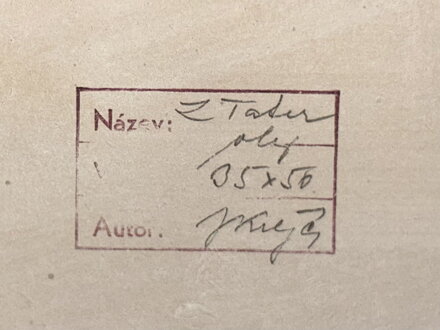 Název: Z Tater
olej
35x50
Autor: JKrejčí